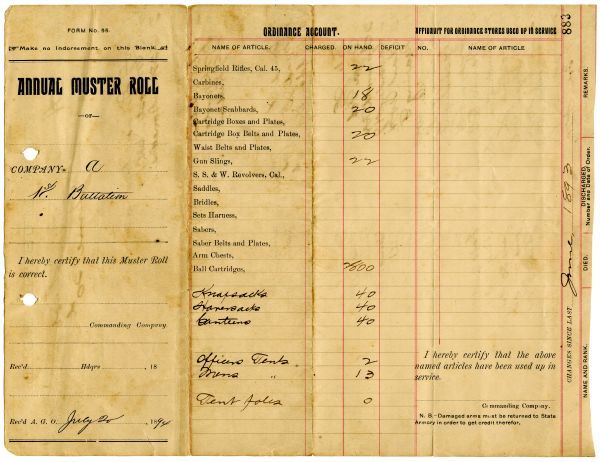 FORM No. 56.
Make no Indorsement on this Blank
ANNUAL MUSTER ROLL
—OF—
COMPANY A
1st Battalion
I hereby certify that this Muster Roll
is correct.
Commanding Company.
Rec'd Hdqrs. , 18
Rec'd A. G. O. July 20 1894
ORDINANCE ACCOUNT.
NAME OF ARTICLE. CHARGED. ON HAND. DEFICIT
Springfield Rifles, Cal. 45, 22
Carbines,
Bayonets, 18
Bayonet Scabbards, 20
Cartridge Boxes and Plates,
Cartridge Box Belts and Plates, 20
Waist Belts and Plates,
Gun Slings, 22
S. S. & W. Revolvers, Cal.,
Saddles,
Bridles,
Sets Harness,
Sabers,
Saber Belts and Plates,
Arm Chests,
Ball Cartridges,
Knapsacks 40
Haversacks 40
Canteens 40
Officers Tents 2
Mens " 13
Tent poles 0
AFFIDAVIT FOR ORDINANCE STORES USED UP IN SERVICE
NO. NAME OF ARTICLE.
I hereby certify that the above
named articles have been used up in
service.
Commanding Company.
N. B.-Damaged arms must be returned to State
Armory in order to get credit therefor.
883
CHANGES SINCE LAST June, 1893
REMARKS.
DISCHARGED.
Number and Date of Order.
DIED.
NAME AND RANK.